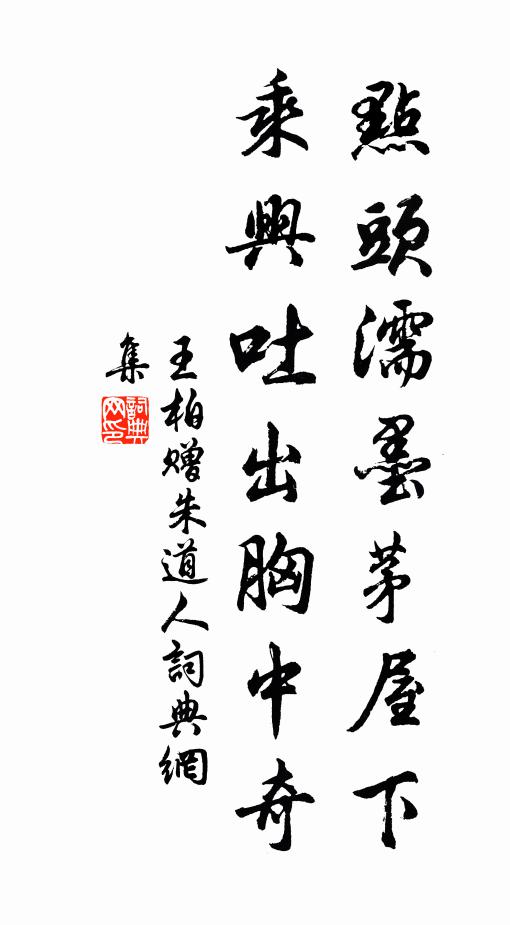 點頭濡墨茅屋下
乘興吐出胸中奇
王柏贈朱道人詞典網
集
詞典
网印